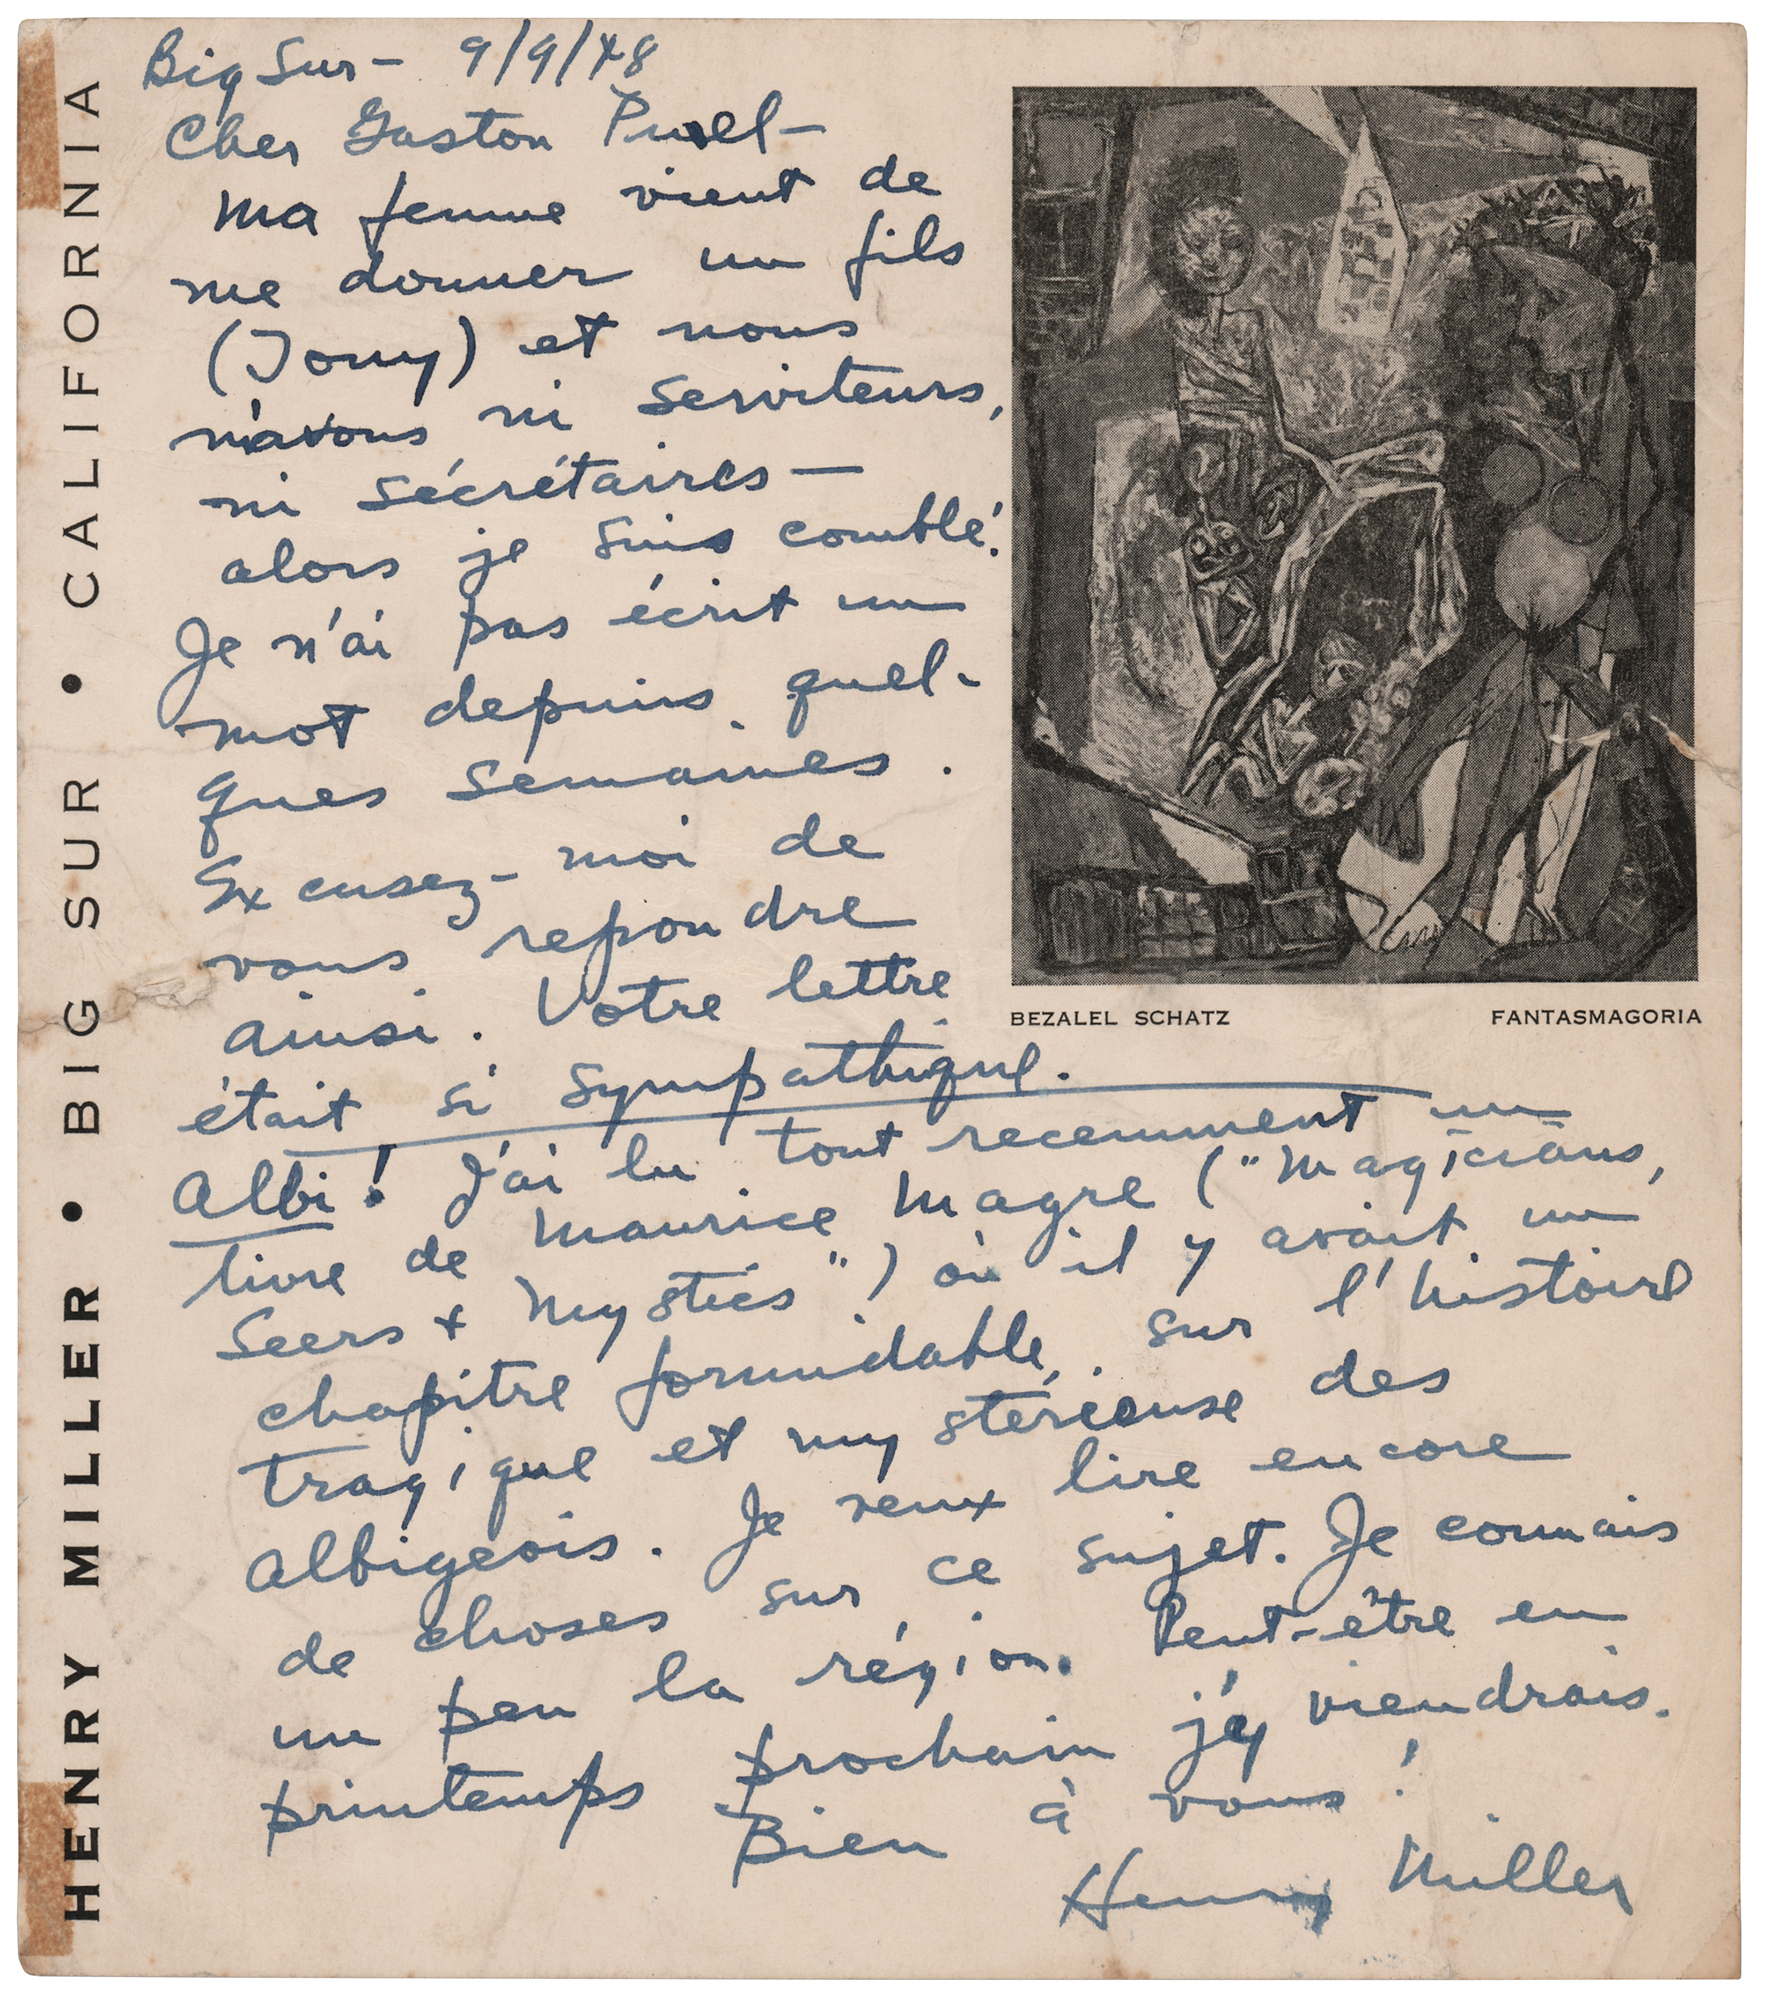 HENRY MILLER • BIG SUR • CALIFORNIA
Big Sur – 9/9/48
Cher Gaston Puel –
Ma femme vient de
me donner un fils
(Tony) et nous
n'avons ni serviteurs,
ni sécrétaires –
alors je suis comblé!
Je n'ai pas écrit un
mot depuis quel-
ques semaines.
Excusez-moi de
vous repondre
ainsi. Votre lettre
était si sympathique.
Albi! J'ai lu tout recemment un
livre de Maurice Magre ("Magicians,
Seers + Mystics") où il y avait un
chapitre formidable sur l'histoire
tragique et mystérieuse des
Albigeois. Je veux lire encore
de choses sur ce sujet. Je connais
un peu la région. Peut-être en
printemps prochain j'y viendrais.
Bien à vous!
Henry Miller
BEZALEL SCHATZ FANTASMAGORIA